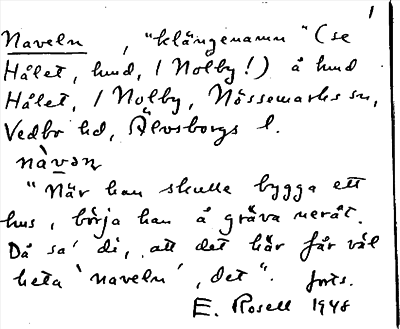 1
Naveln, "klängenamn" (se
Hålet, hmd, / Nolby!) å hmd
Hålet, / Nolby, Nössemarks sn,
Vedbo hd, Älvsborgs l.
nàvən
"När han skulle bygga ett
hus, börja han å gräva neråt.
Då sa' di, att det här får väl
heta 'naveln', det". forts.
E. Rosell 1948